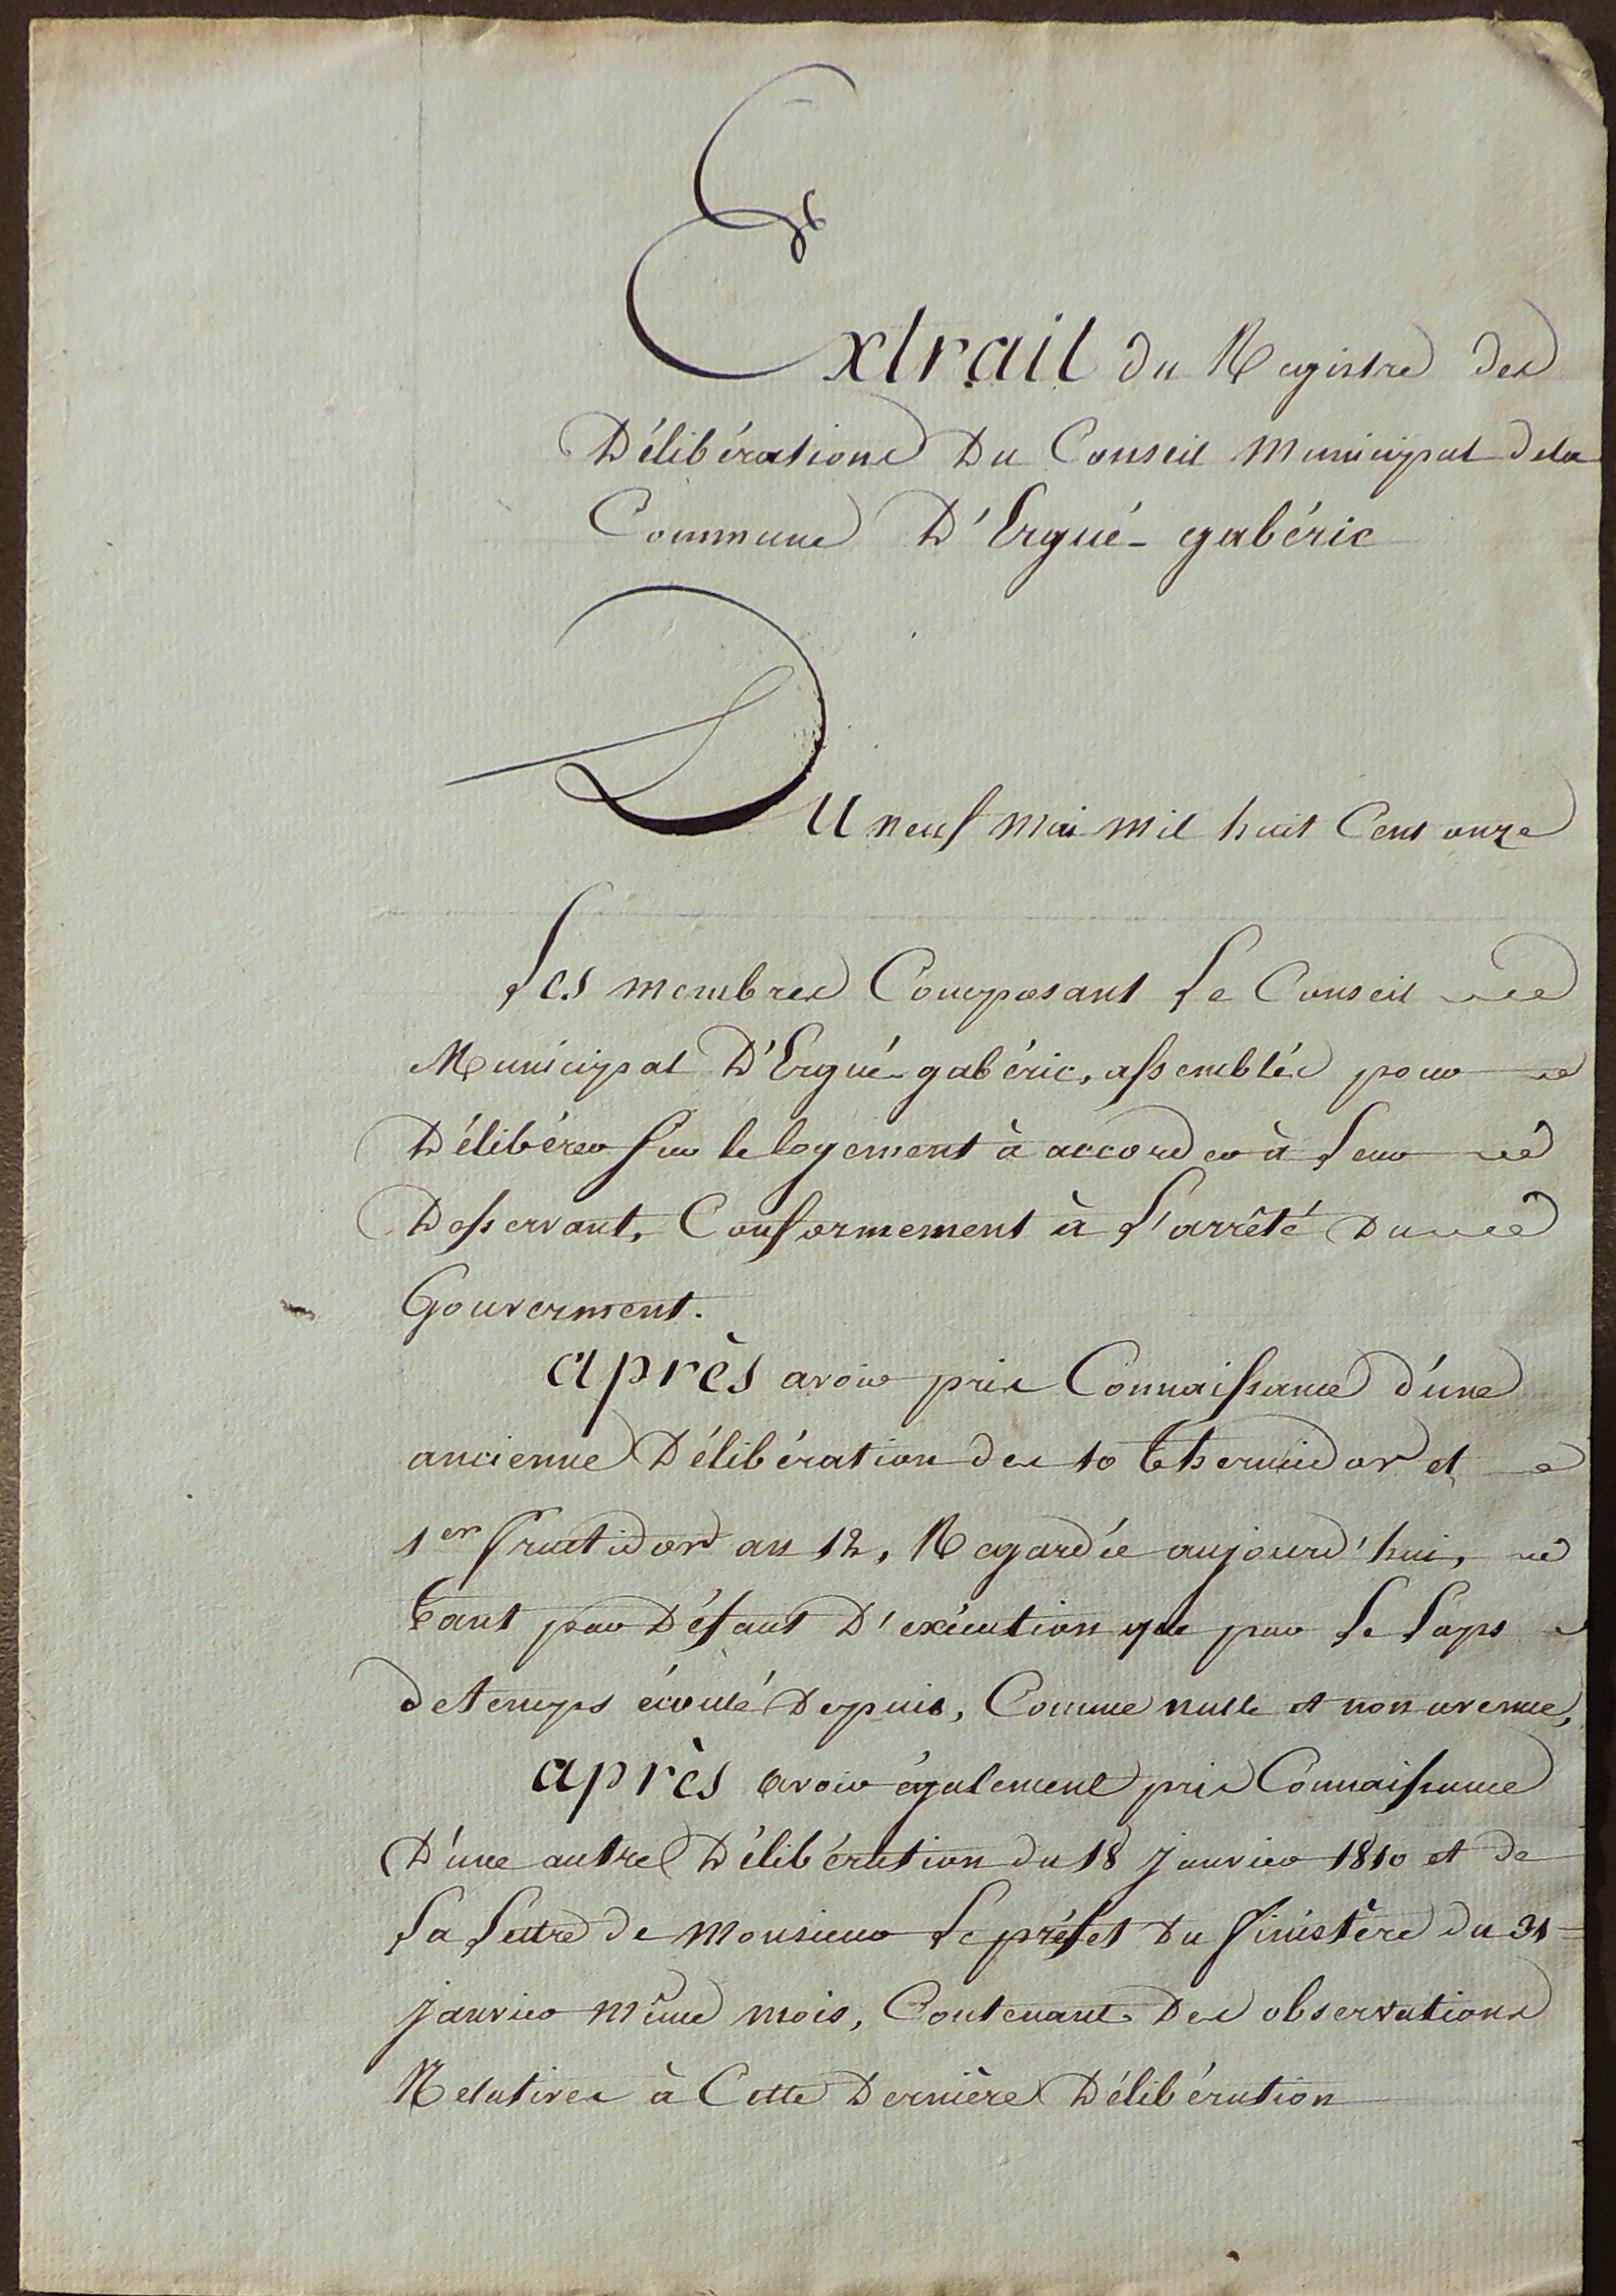 Extrait du Registre des
Délibérations Du Conseil Municipal dela
Commune D'Ergué-gabéric
Du neuf mai mil huit Cent onze
Les membres Composant Le Conseil
Municipal D'Ergué-gabéric, assemblés pour
Délibérer Sur le logement à accorder à Leur
Desservant, Conformement à L'arrêté Du
Gouverment.
après avoir pris Connaissance d'une
ancienne Délibération des 10 Thermidor et
1er fructidor an 12, Regardée aujourd'hui,
Tant par Défaut D'exécution que par Le Laps
detemps écoulé Depuis, Comme nulle et non avenue,
après avoir également pris Connaissance
D'une autre Délibération du 18 janvier 1810 et de
La Lettre de Monsieur Le préfet Du finistère du 31
janvier même mois, Contenant Des observations
Relatives à Cette Dernière Délibération